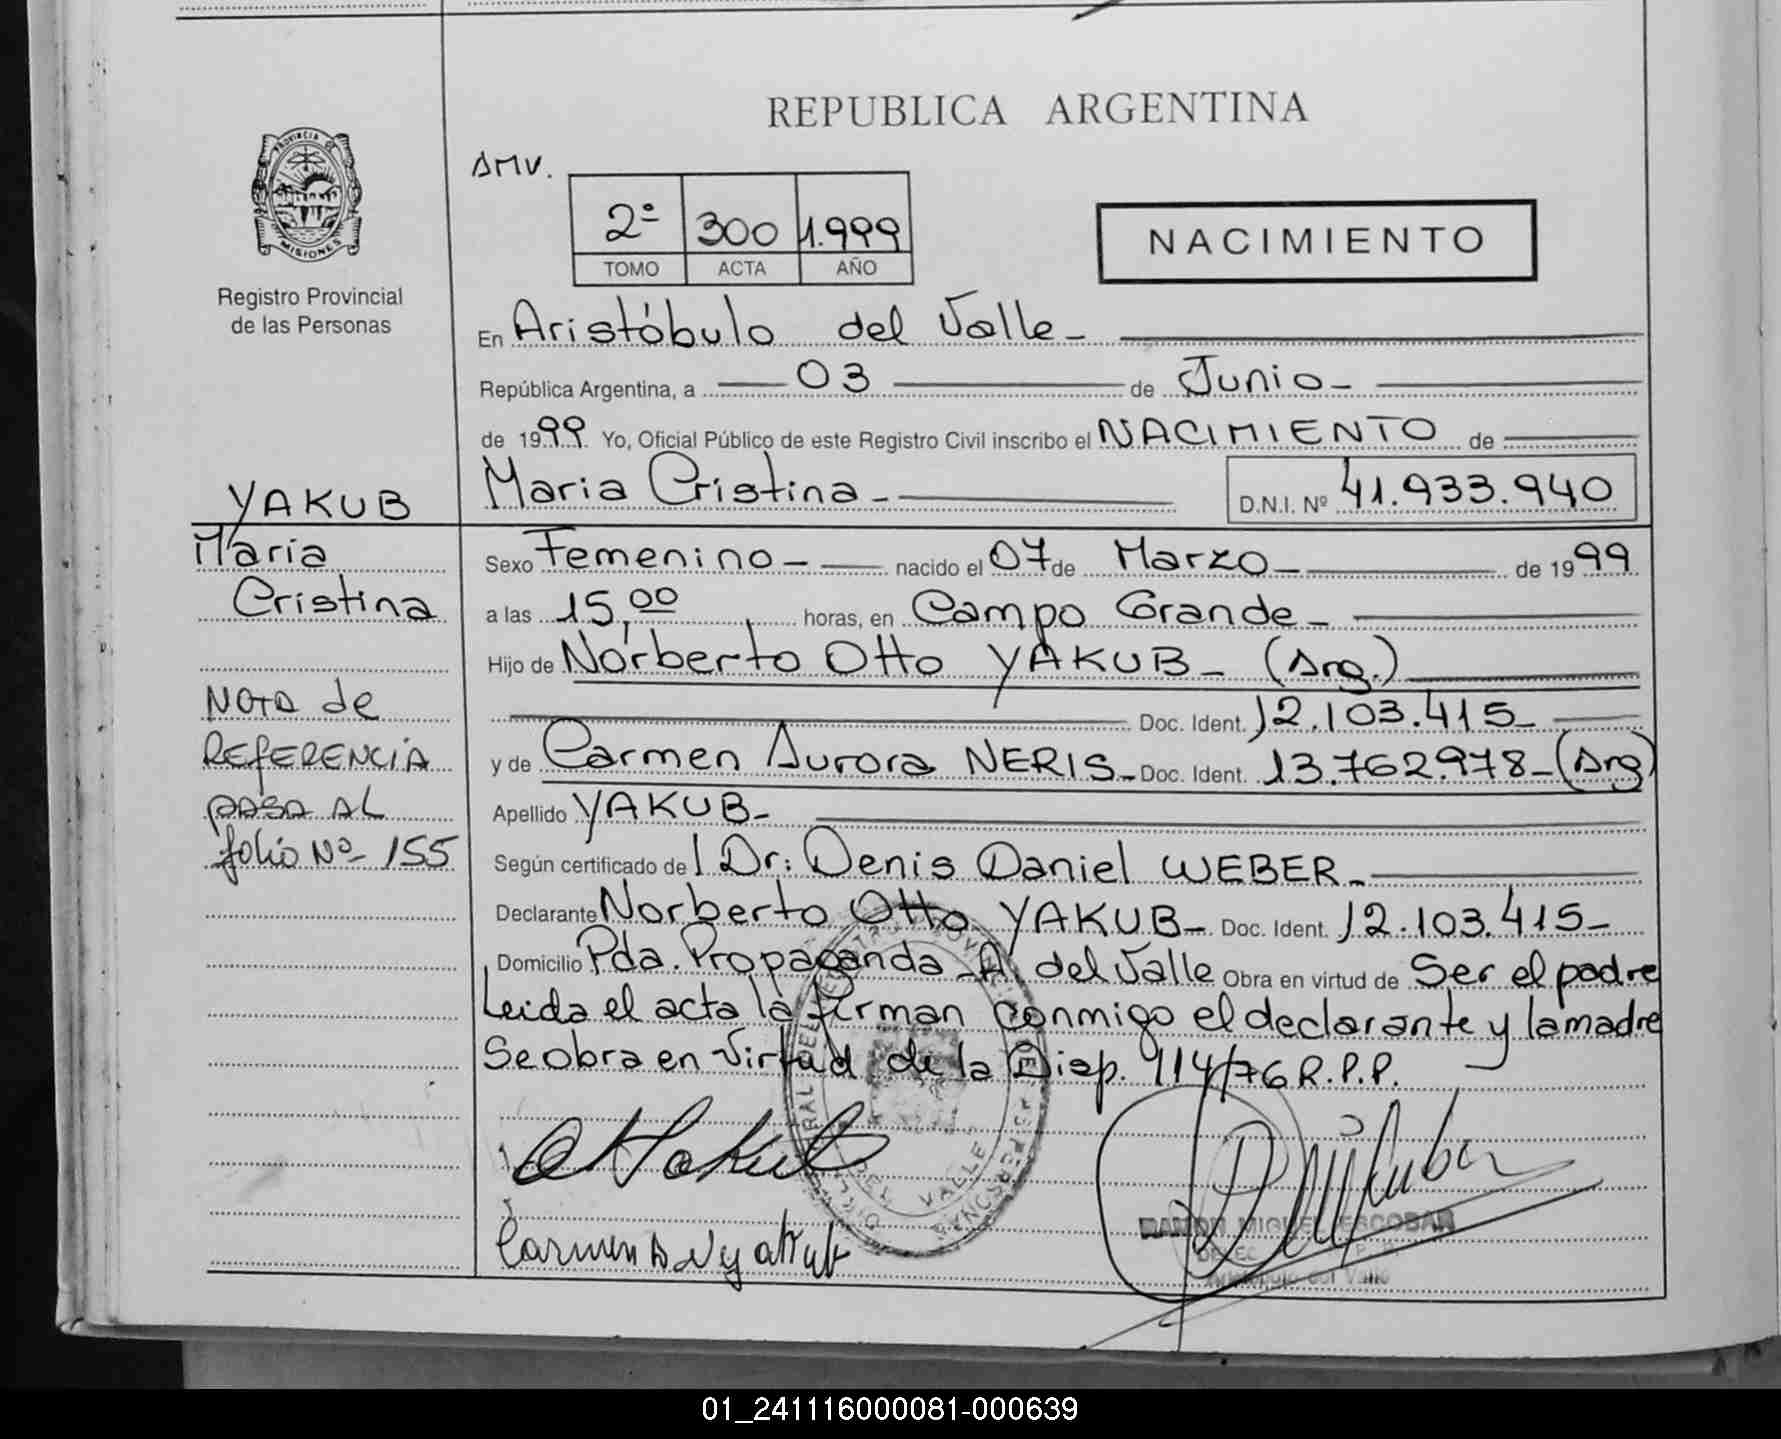 REPUBLICA ARGENTINA
PROVINCIA DE
MISIONES
Registro Provincial
de las Personas
AMV.
2º 300 1.999
TOMO ACTA AÑO
NACIMIENTO
En Aristóbulo del Valle-
República Argentina, a 03 de Junio-
de 1999 Yo, Oficial Público de este Registro Civil inscribo el NACIMIENTO de
Maria Cristina- D.N.I. Nº 41.933.940
YAKUB
Maria
Cristina
NOTA de
REFERENCIA
PASA AL
folio Nº 155
Sexo Femenino- nacido el 07 de Marzo- de 1999
a las 15,00 horas, en Campo Grande-
Hijo de Norberto Otto YAKUB- (Arg.)
Doc. Ident. 12.103.415-
y de Carmen Aurora NERIS- Doc. Ident. 13.762.978-(Arg)
Apellido YAKUB-
Según certificado de l Dr: Denis Daniel WEBER-
Declarante Norberto Otto YAKUB- Doc. Ident. 12.103.415-
Domicilio Pda. Propaganda-A. del Valle Obra en virtud de Ser el padre
Leida el acta la firman conmigo el declarante y la madre
Se obra en virtud de la Disp. 914/76 R.P.P.
RAMON MIGUEL ESCOBAR
Aristobulo del Valle
01_241116000081-000639